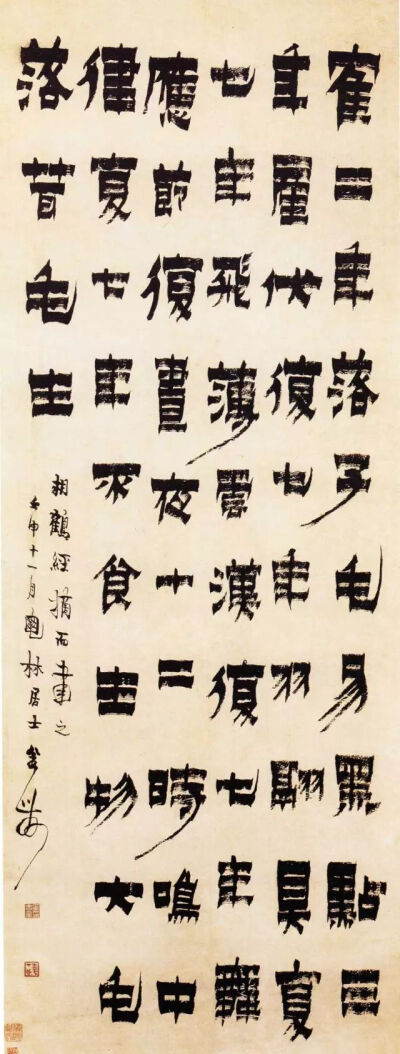 寉二年落子毛易黑點三
年產伏復七年羽翮具夏
七年飛薄雲漢復七年舞
應節復晝夜十二時鳴中
律夏七年不食生物大毛
落茸毛生
相鶴經摘而書之
壬申十一月林居士金農